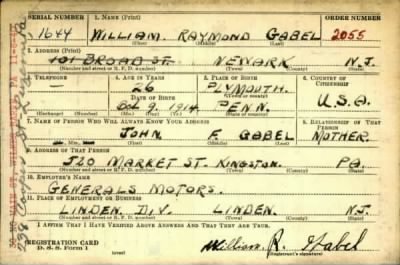 SERIAL NUMBER 1. NAME (Print) ORDER NUMBER
1644 WILLIAM. RAYMOND GABEL 2055
(First) (Middle) (Last)
2. ADDRESS (Print)
101 BROAD ST. NEWARK N.J.
(Number and street or R. F. D. number) (Town) (County) (State)
3. TELEPHONE 4. AGE IN YEARS 5. PLACE OF BIRTH 6. COUNTRY OF CITIZENSHIP
— 26 PLYMOUTH.
DATE OF BIRTH (Town or county)
Oct 9, 1914 PENN. U.S.A.
(Exchange) (Number) (Mo.) (Day) (Yr.) (State or country)
7. NAME OF PERSON WHO WILL ALWAYS KNOW YOUR ADDRESS 8. RELATIONSHIP OF THAT PERSON
JOHN F. GABEL MOTHER.
(First) (Middle) (Last)
9. ADDRESS OF THAT PERSON
520 MARKET ST. KINGSTON. PA.
(Number and street or R. F. D. number) (Town) (County) (State)
10. EMPLOYER'S NAME
GENERALS MOTORS.
11. PLACE OF EMPLOYMENT OR BUSINESS
LINDEN DIV. LINDEN. N.J.
(Number and street or R. F. D. number) (Town) (County) (State)
I AFFIRM THAT I HAVE VERIFIED ABOVE ANSWERS AND THAT THEY ARE TRUE.
REGISTRATION CARD
D. S. S. Form 1 (over) William R. Gabel